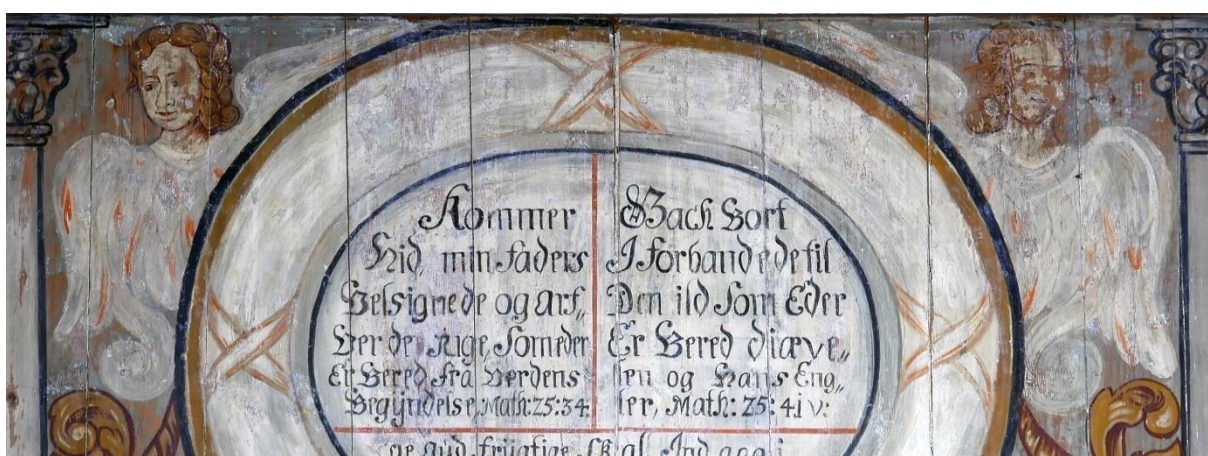 Kommer
Hid, min faders
Velsignede og arf„
Ver de Rige, Som eder
Er Bered fra Verdens
Begÿndelse, Math: 25: 34:
Gach Bort
I forbandede til
Den ild Som Eder
Er Bered diæve„
len og Hans Eng„
ler, Math: 25: 41 v:
gud frÿgtige Skal Ind gaa i